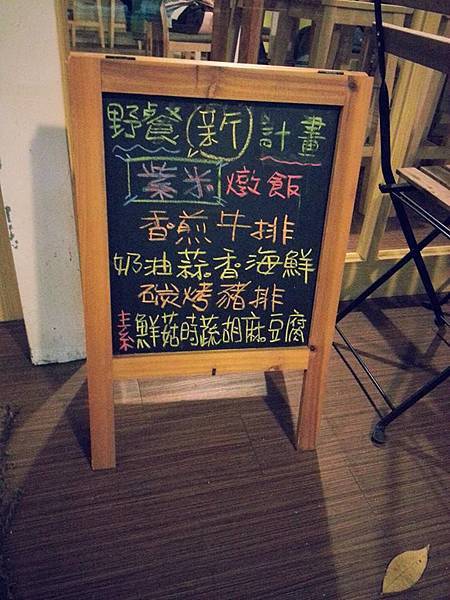 野餐新計畫
紫米燉飯
香煎牛排
奶油蒜香海鮮
碳烤豬排
素鮮菇時蔬胡麻豆腐